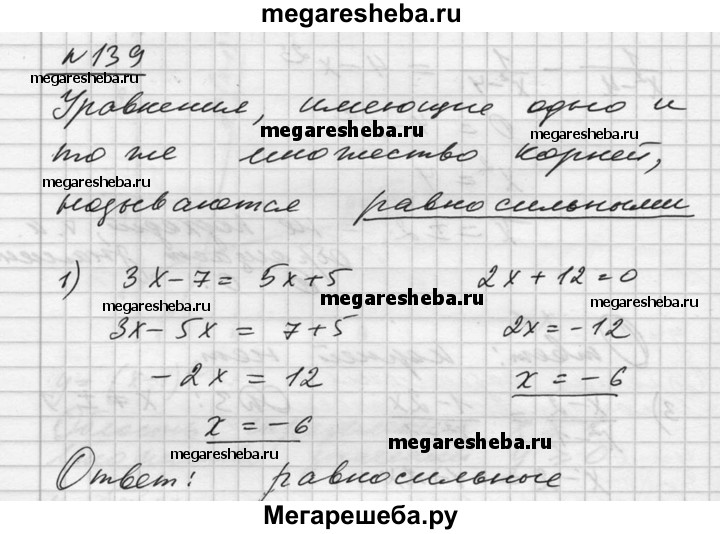 megaresheba.ru
№139
megaresheba.ru
Уравнения, имеющие одно и
megaresheba.ru
megaresheba.ru
то же множество корней,
megaresheba.ru
называются равносильными
1) 3x-7= 5x+5 2x+12=0
megaresheba.ru
megaresheba.ru
megaresheba.ru
3x-5x = 7+5 2x=-12
-2x = 12 x = -6
x = -6
megaresheba.ru
megaresheba.ru
Ответ: равносильные
Мегарешеба.ру